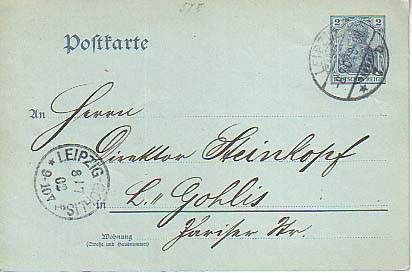 575
Postkarte
2 2
DEUTSCHES REICH
LEIPZIG
An Herrn
Direktor Steinkopf
in L.-Gohlis
Pariser Str.
Wohnung
(Straße und Hausnummer)
LEIPZIG
8 1
02